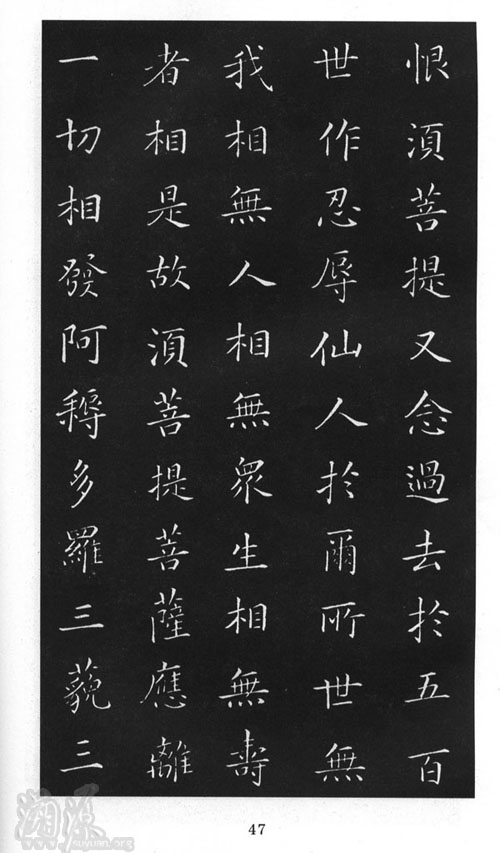 恨須菩提又念過去於五百
世作忍辱仙人於爾所世無
我相無人相無眾生相無壽
者相是故須菩提菩薩應離
一切相發阿耨多羅三藐三
47
溯源
suyuan.org